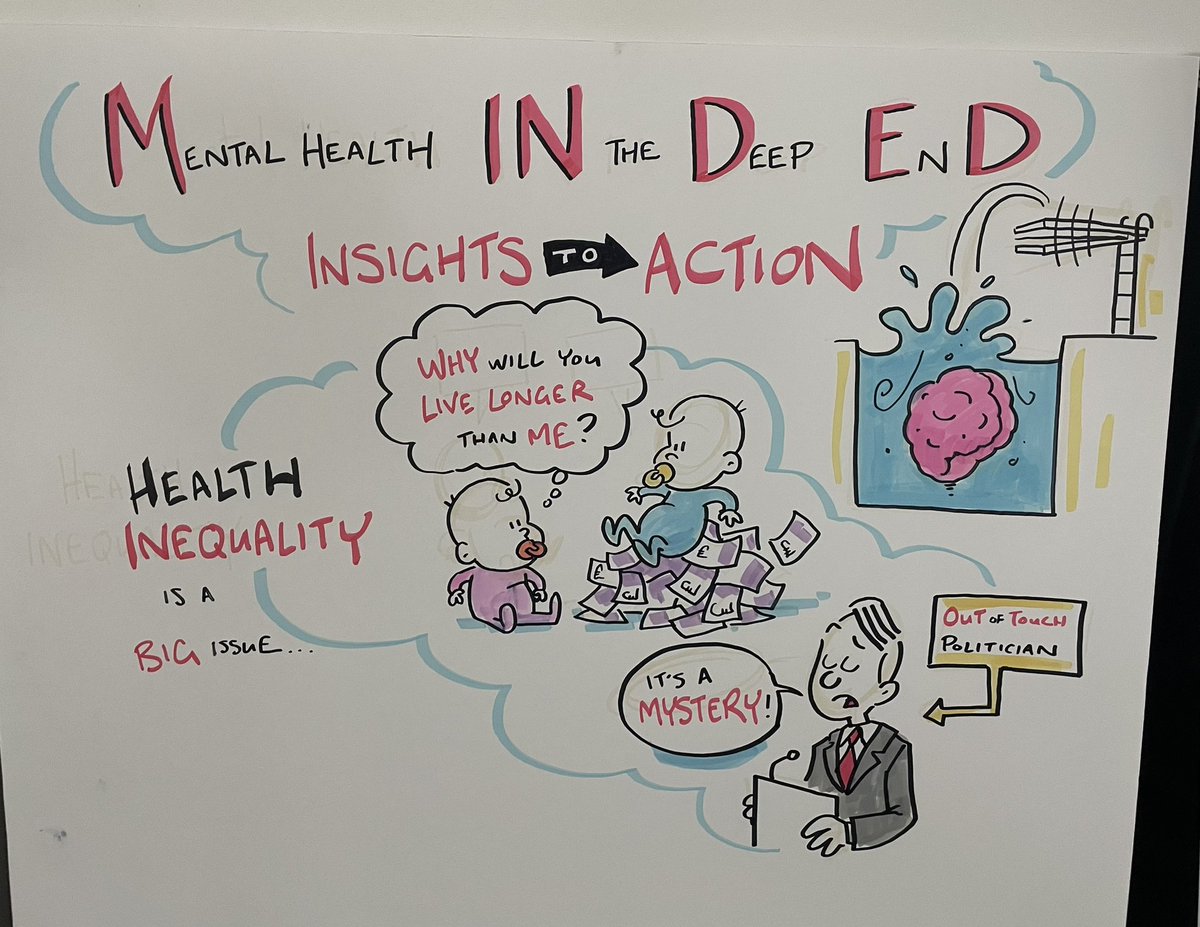 MENTAL HEALTH IN THE DEEP END
INSIGHTS TO ACTION
WHY WILL YOU
LIVE LONGER
THAN ME?
HEALTH
INEQUALITY
IS A
BIG ISSUE...
£
£
£
£
£
OUT OF TOUCH
POLITICIAN
IT'S A
MYSTERY!